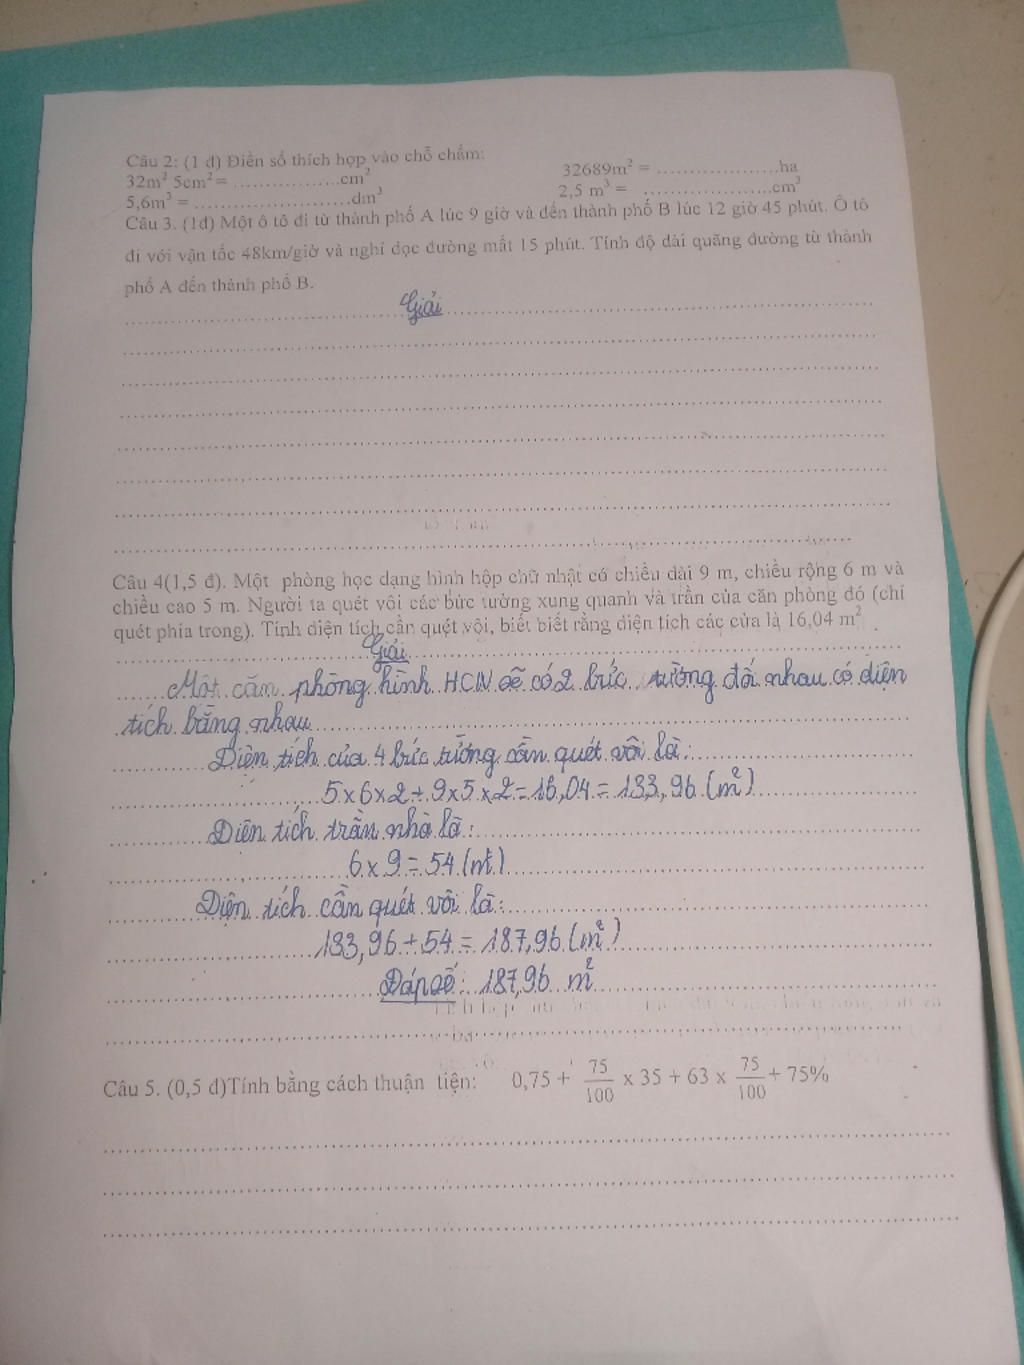 Câu 2: (1 đ) Điền số thích hợp vào chỗ chấm:
32m² 5cm² = ..................cm² 32689m² = ....................ha
5,6m³ = ..........................dm³ 2,5 m³ = ......................cm³
Câu 3. (1đ) Một ô tô đi từ thành phố A lúc 9 giờ và đến thành phố B lúc 12 giờ 45 phút. Ô tô
đi với vận tốc 48km/giờ và nghỉ dọc đường mất 15 phút. Tính độ dài quãng đường từ thành
phố A đến thành phố B.
Giải
Câu 4(1,5 đ). Một phòng học dạng hình hộp chữ nhật có chiều dài 9 m, chiều rộng 6 m và
chiều cao 5 m. Người ta quét vôi các bức tường xung quanh và trần của căn phòng đó (chỉ
quét phía trong). Tính diện tích cần quét vôi, biết biết rằng diện tích các cửa là 16,04 m² .
Giải
Một căn phòng hình HCN sẽ có 2 bức tường đối nhau có diện
tích bằng nhau
Diện tích của 4 bức tường cần quét vôi là:
5 x 6 x 2 + 9 x 5 x 2 - 16,04 = 133,96 (m²)
Diện tích trần nhà là:
6 x 9 = 54 (m²)
Diện tích cần quét vôi là:
133,96 + 54 = 187,96 (m²)
Đáp số: 187,96 m²
Câu 5. (0,5 đ)Tính bằng cách thuận tiện: 0,75 + 75/100 x 35 + 63 x 75/100 + 75%